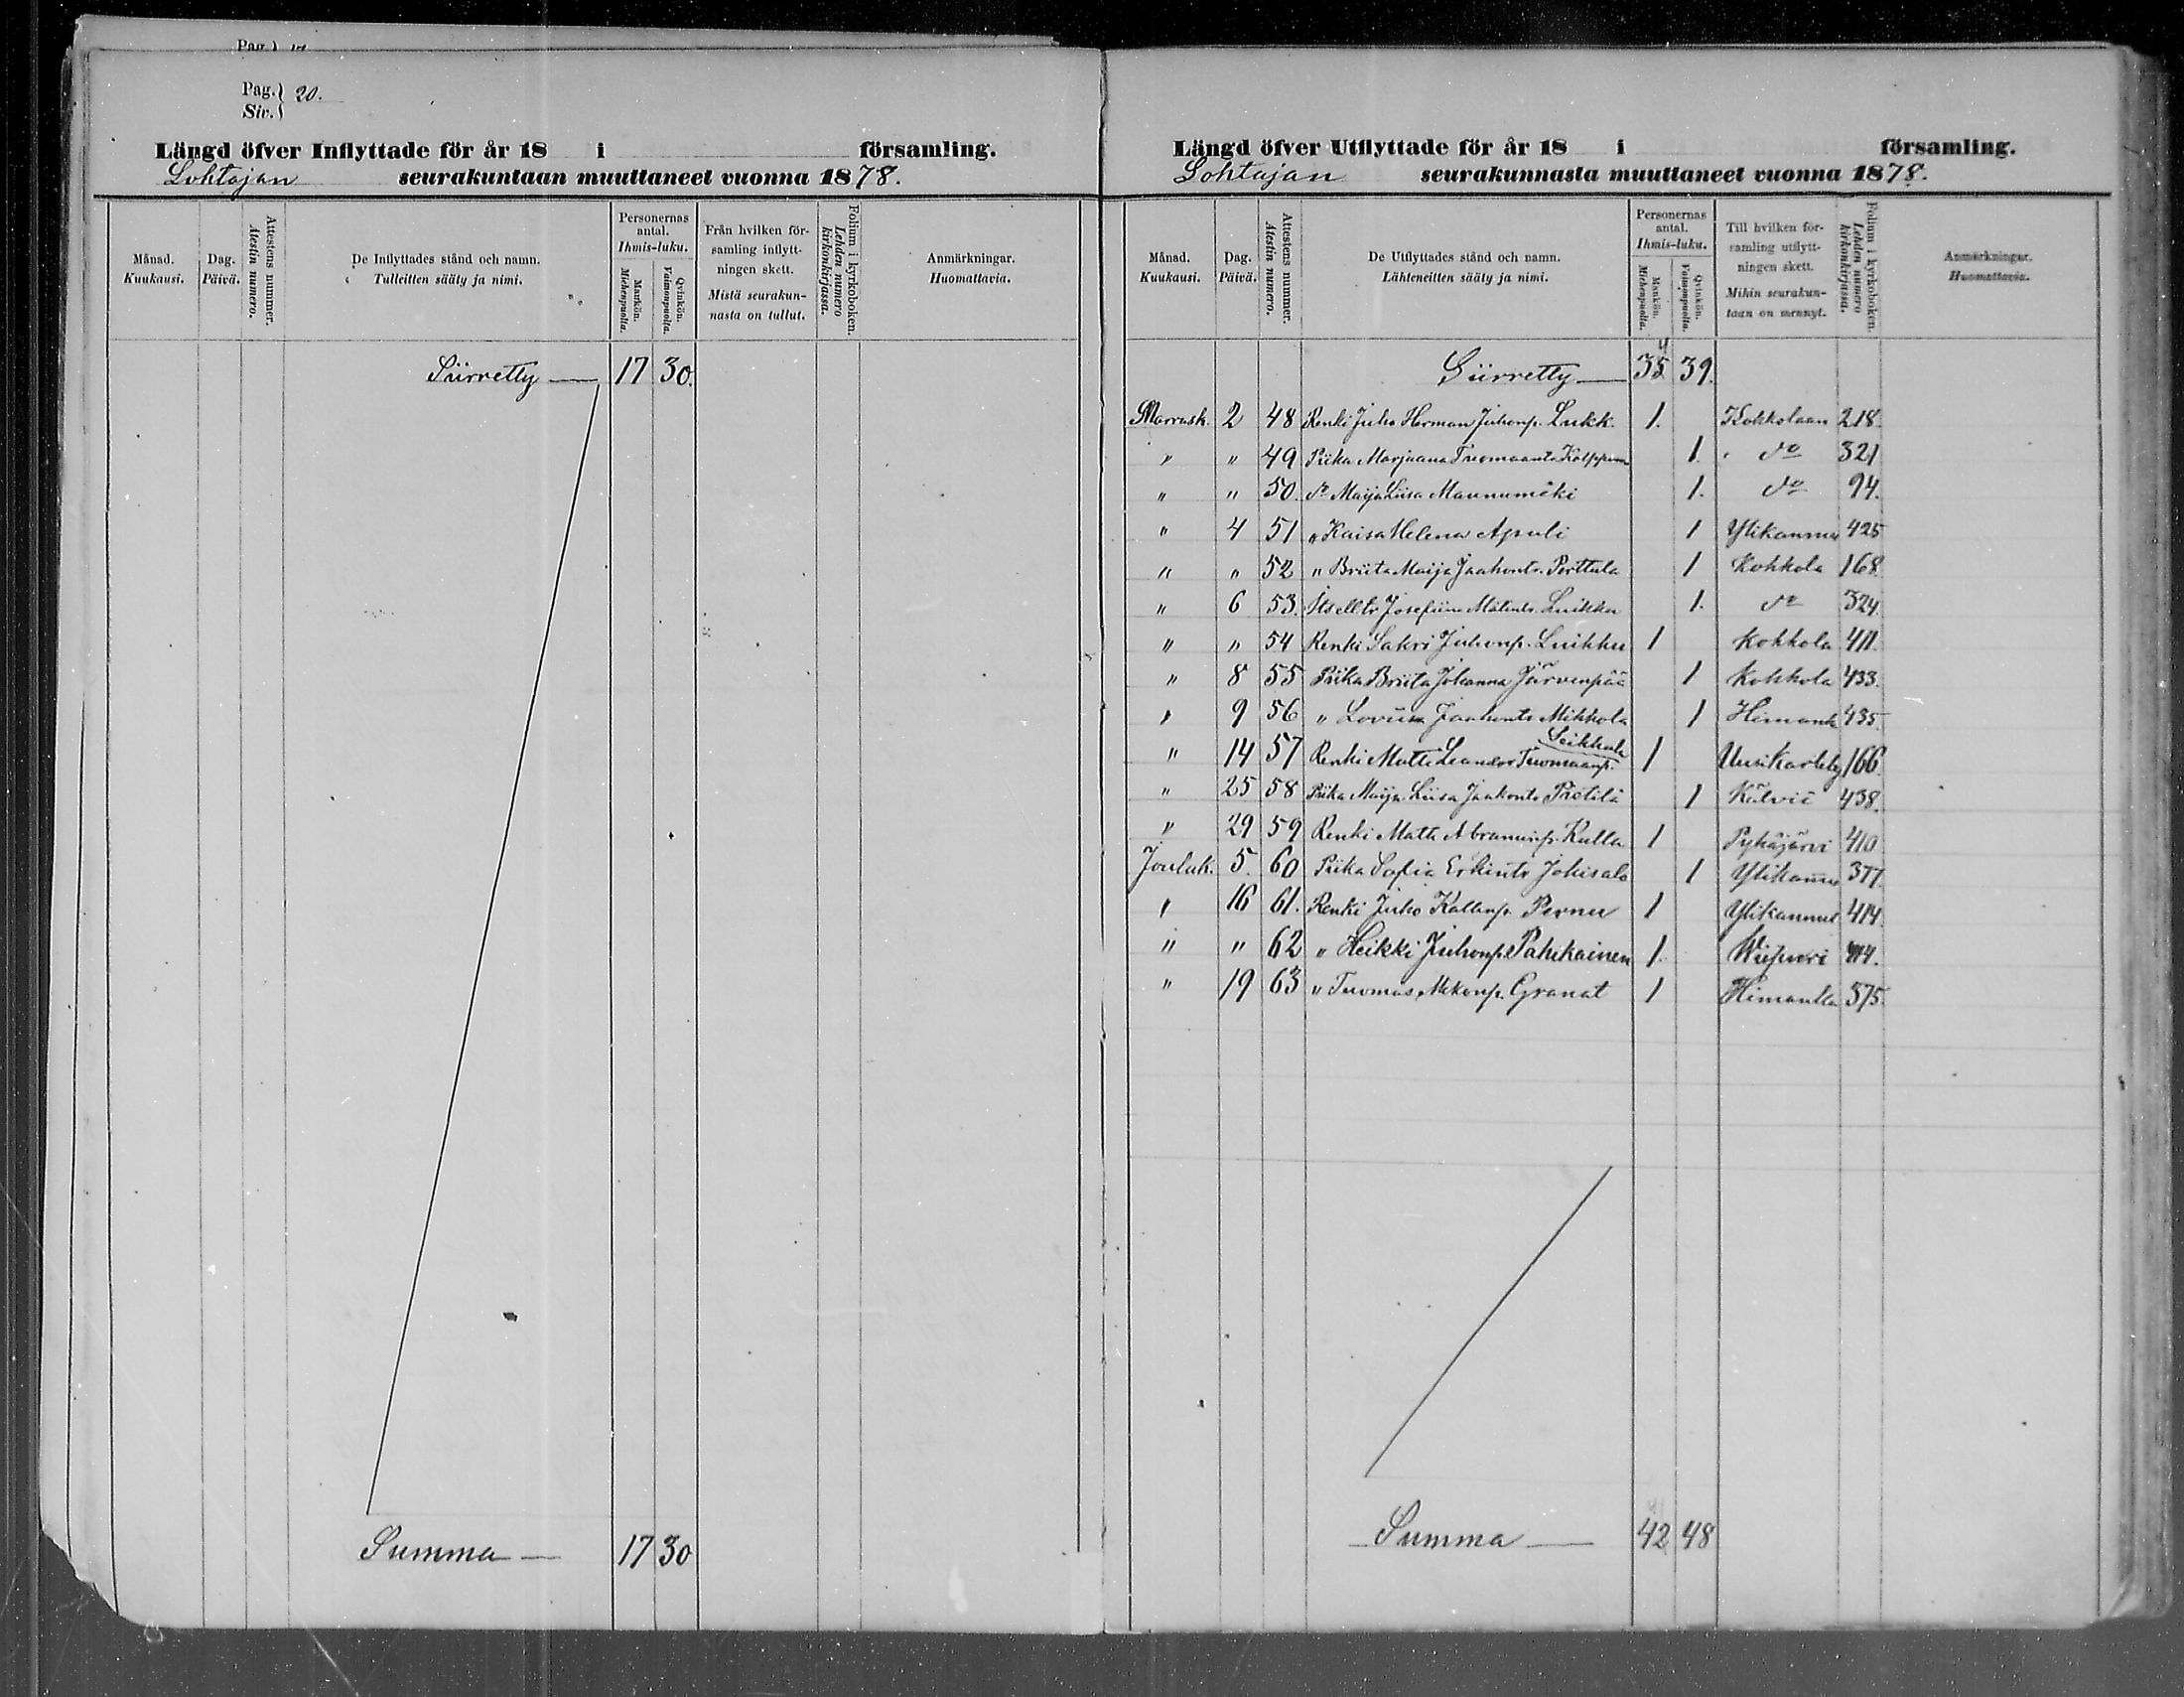 Pag.
Pag. Siv. 20.
Längd öfver Inflyttade för år 18 i församling.
Lohtajan seurakuntaan muuttaneet vuonna 1878.
Månad. Kuukausi.
Dag. Päivä.
Attestens nummer. Atestin numero.
De Inflyttades stånd och namn. Tulleitten sääty ja nimi.
Personernas antal. Ihmis-luku.
Mankön. Miehenpuolta.
Qvinkön. Vaimonpuolta.
Från hvilken för-samling inflytt-ningen skett. Mistä seurakun-nasta on tullut.
Folium i kyrkoboken. Lehden numero kirkonkirjassa.
Anmärkningar. Huomattavia.
Siirretty 17 30.
Summa 17 30
Längd öfver Utflyttade för år 18 i församling.
Lohtajan seurakunnasta muuttaneet vuonna 1878.
Månad. Kuukausi.
Dag. Päivä.
Attestens nummer. Atestin numero.
De Utflyttades stånd och namn. Lähteneitten sääty ja nimi.
Personernas antal. Ihmis-luku.
Mankön. Miehenpuolta.
Qvinkön. Vaimonpuolta.
Till hvilken för-samling utflytt-ningen skett. Mihin seurakun-taan on mennyt.
Folium i kyrkoboken. Lehden numero kirkonkirjassa.
Anmärkningar. Huomattavia.
Siirretty 35 4 39.
Marrask. 2 48 Renki Juho Herman Juhonp. Lukk. 1. Kokkolaan 218.
" " 49 Piika Marjaana Tuomaant. 1. do 321
" " 50. do Maija Liisa Maunumäki 1. do 94.
" 4 51 " Kaisa Helena 1 Ylikannus 425
" " 52 " Briita Maija Jaakont. Perttula 1 Kokkola 168.
" 6 53. Josefiina Luikku 1. do 324.
" " 54 Renki Sakri Juhonp. Luikku 1 Kokkola 411.
" 8 55 Piika Briita Johanna Järvenpää 1 Kokkola 433.
" 9 56 " Loviisa Jaakont. Mikkola 1 Himanka 435.
" 14 57 Renki Matti Leander Tuomaanp. Leikkala 1 Uusikarleby 166.
" 25 58 Piika Maija Liisa Jaakont. Pietilä 1 Kälviä 438.
" 29 59 Renki Matti Abraminp. Kulla 1 Pyhäjärvi 410
Jouluk. 5. 60 Piika Sofia Erkint. Jokisalo 1 Ylikannus 377.
" 16 61. Renki Juho Kallenp. Pernu 1 Ylikannus 414.
" " 62 " Heikki Juhonp. Pahikainen 1. Wiipuri
" 19 63 " Tuomas Granat 1 Himanka 375.
Summa 42 48